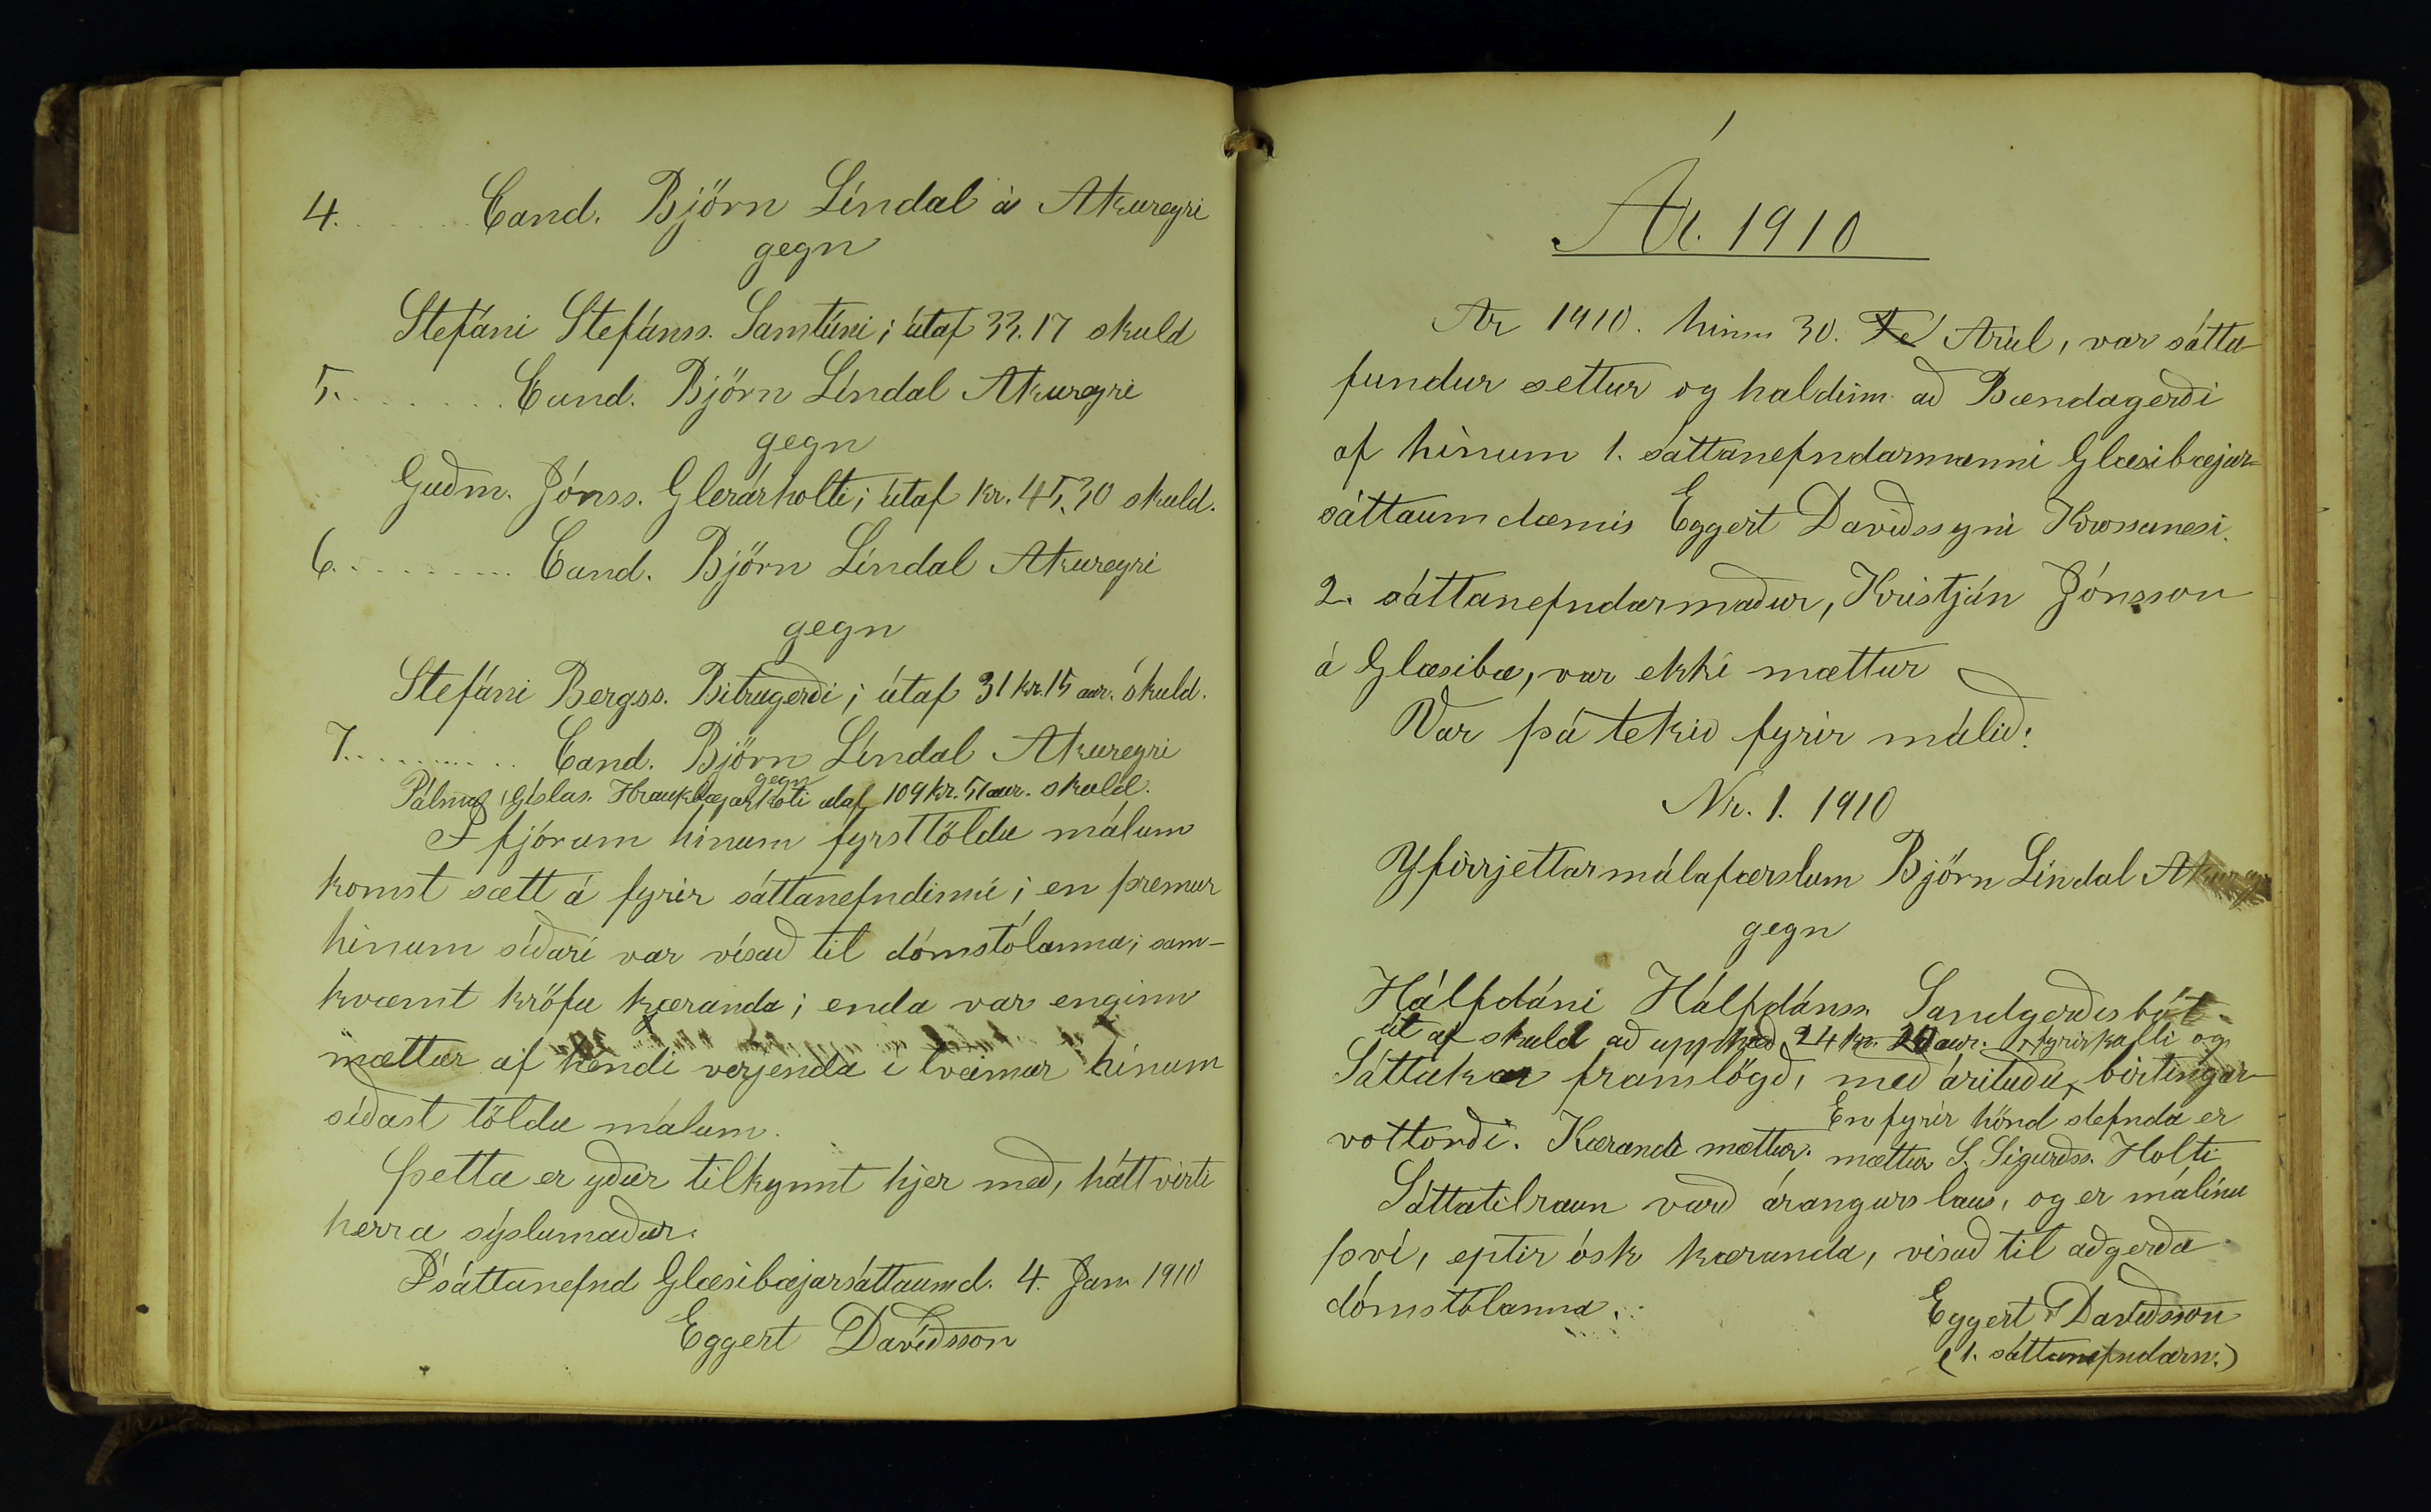 4. . . . . . . Cand. Björn Líndal á Akureyri
gegn
Stefáni Stefánss. Samtúni; útaf 33.17 skuld
5. . . . . . . . Cand. Björn Líndal Akureyri
gegn
Guðm. Jónss. Glerárholti; útaf kr. 45.30 skuld.
6. . . . . . . . . Cand. Björn Líndal Akureyri
gegn
Stefáni Bergss. Bitrugerði; útaf 31 kr. 15 aur. skuld.
7. . . . . . . . . Cand. Björn Líndal Akureyri
gegn
Pálma Gíslas. Hraukbæjarkoti útaf 109 kr. 51 aur. skuld.
Í fjórum hinum fyrsttöldu málum
komst sætt á fyrir sáttanefndinni; en þremur
hinum síðari var vísað til dómstólanna; sam-
kvæmt kröfu kæranda; enda var enginn
mættur af hendi verjenda í tveimur hinum
síðast töldu málum.
Þetta er yður tilkynnt hjer með, háttvirti
herra sýslumaður.
Í sáttanefnd Glæsibæjarsáttaumd. 4. Jan 1910
Eggert Davíðsson
Ár. 1910
Ár 1910. hinn 30. Fe Apríl, var sátta
fundur settur og haldinn að Bændagerði
af hinum 1. sáttanefndarmanni Glæsibæjar-
sáttaumdæmis Eggert Davíðssyni Krossanesi.
2. sáttanefndarmaður, Kristján Jónsson
á Glæsibæ, var ekki mættur
Var þá tekið fyrir málið:
Nr. 1. 1910
Yfirrjettarmálafærslum Björn Líndal Akureyri
gegn
Hálfdáni Hálfdánss. Sandgerðisbót
út af skuld að upphæð 24 kr. 20 aur. fyrirkalli og
Sáttakæra framlögð, með árituðu birtingar-
vottorði. Kærandi mættur. En fyrir hönd stefnda er
mættur S. Sigurðss. Holti
Sáttatilraun varð árangurslaus, og er málinu
því, eptir ósk kæranda, vísað til aðgerða
dómstólanna.
Eggert Davíðsson
(1. sáttanefndarm.)